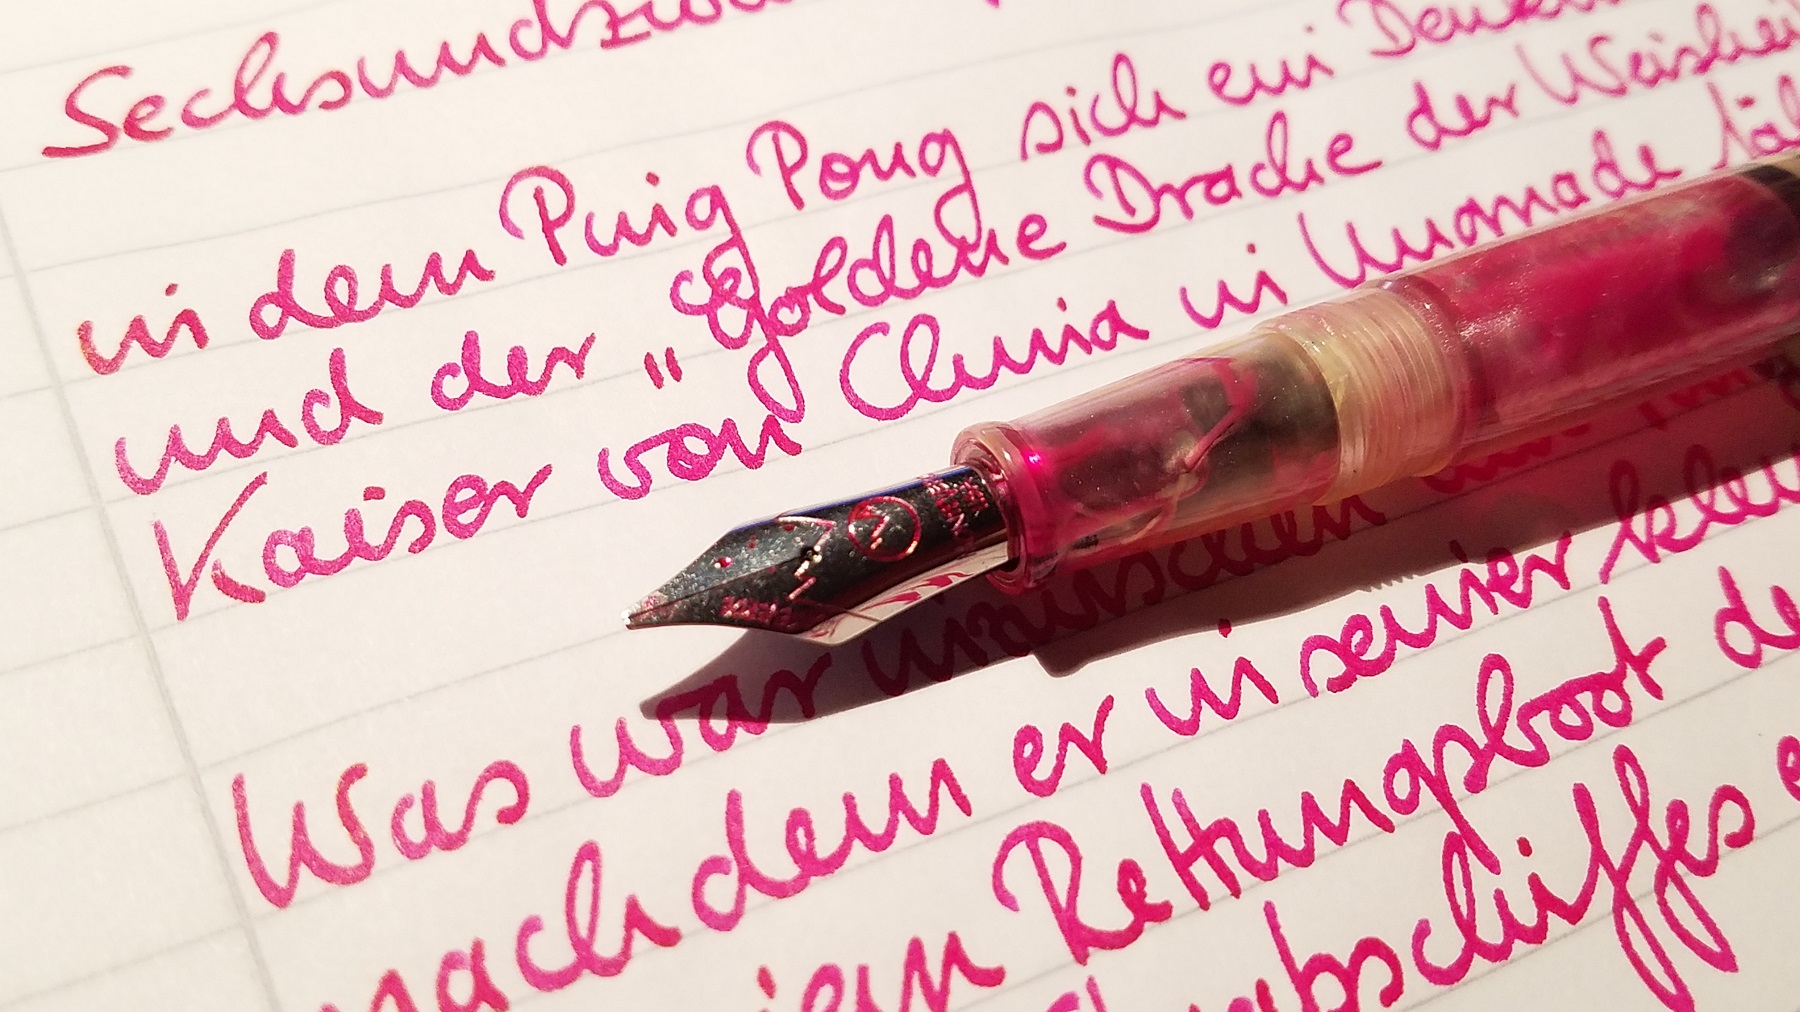 Sechsundzwa
in dem Ping Pong sich ein Denk
und der „Goldene Drache der Weisheit
Kaiser von China in Ungnade fäl
Was war inzwischen
nachdem er in seiner klei
Rettungsboot de
schiffes